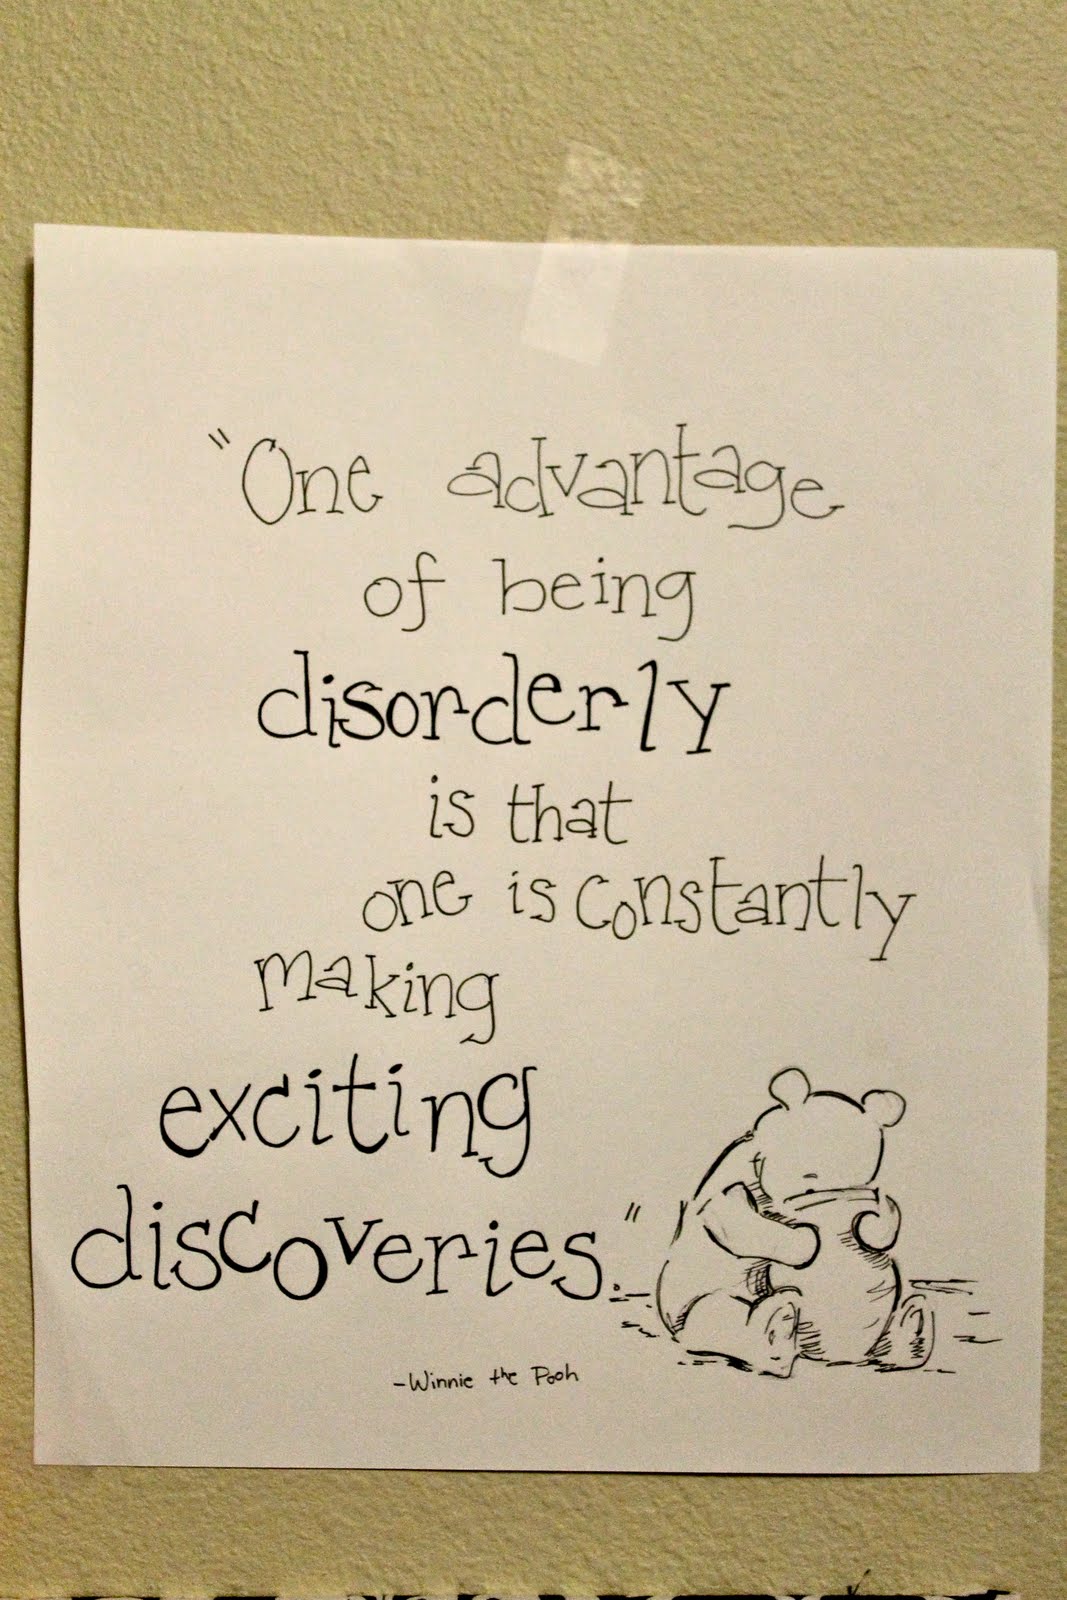 "One advantage
of being
disorderly
is that
one is constantly
making
exciting
discoveries."
-Winnie the Pooh